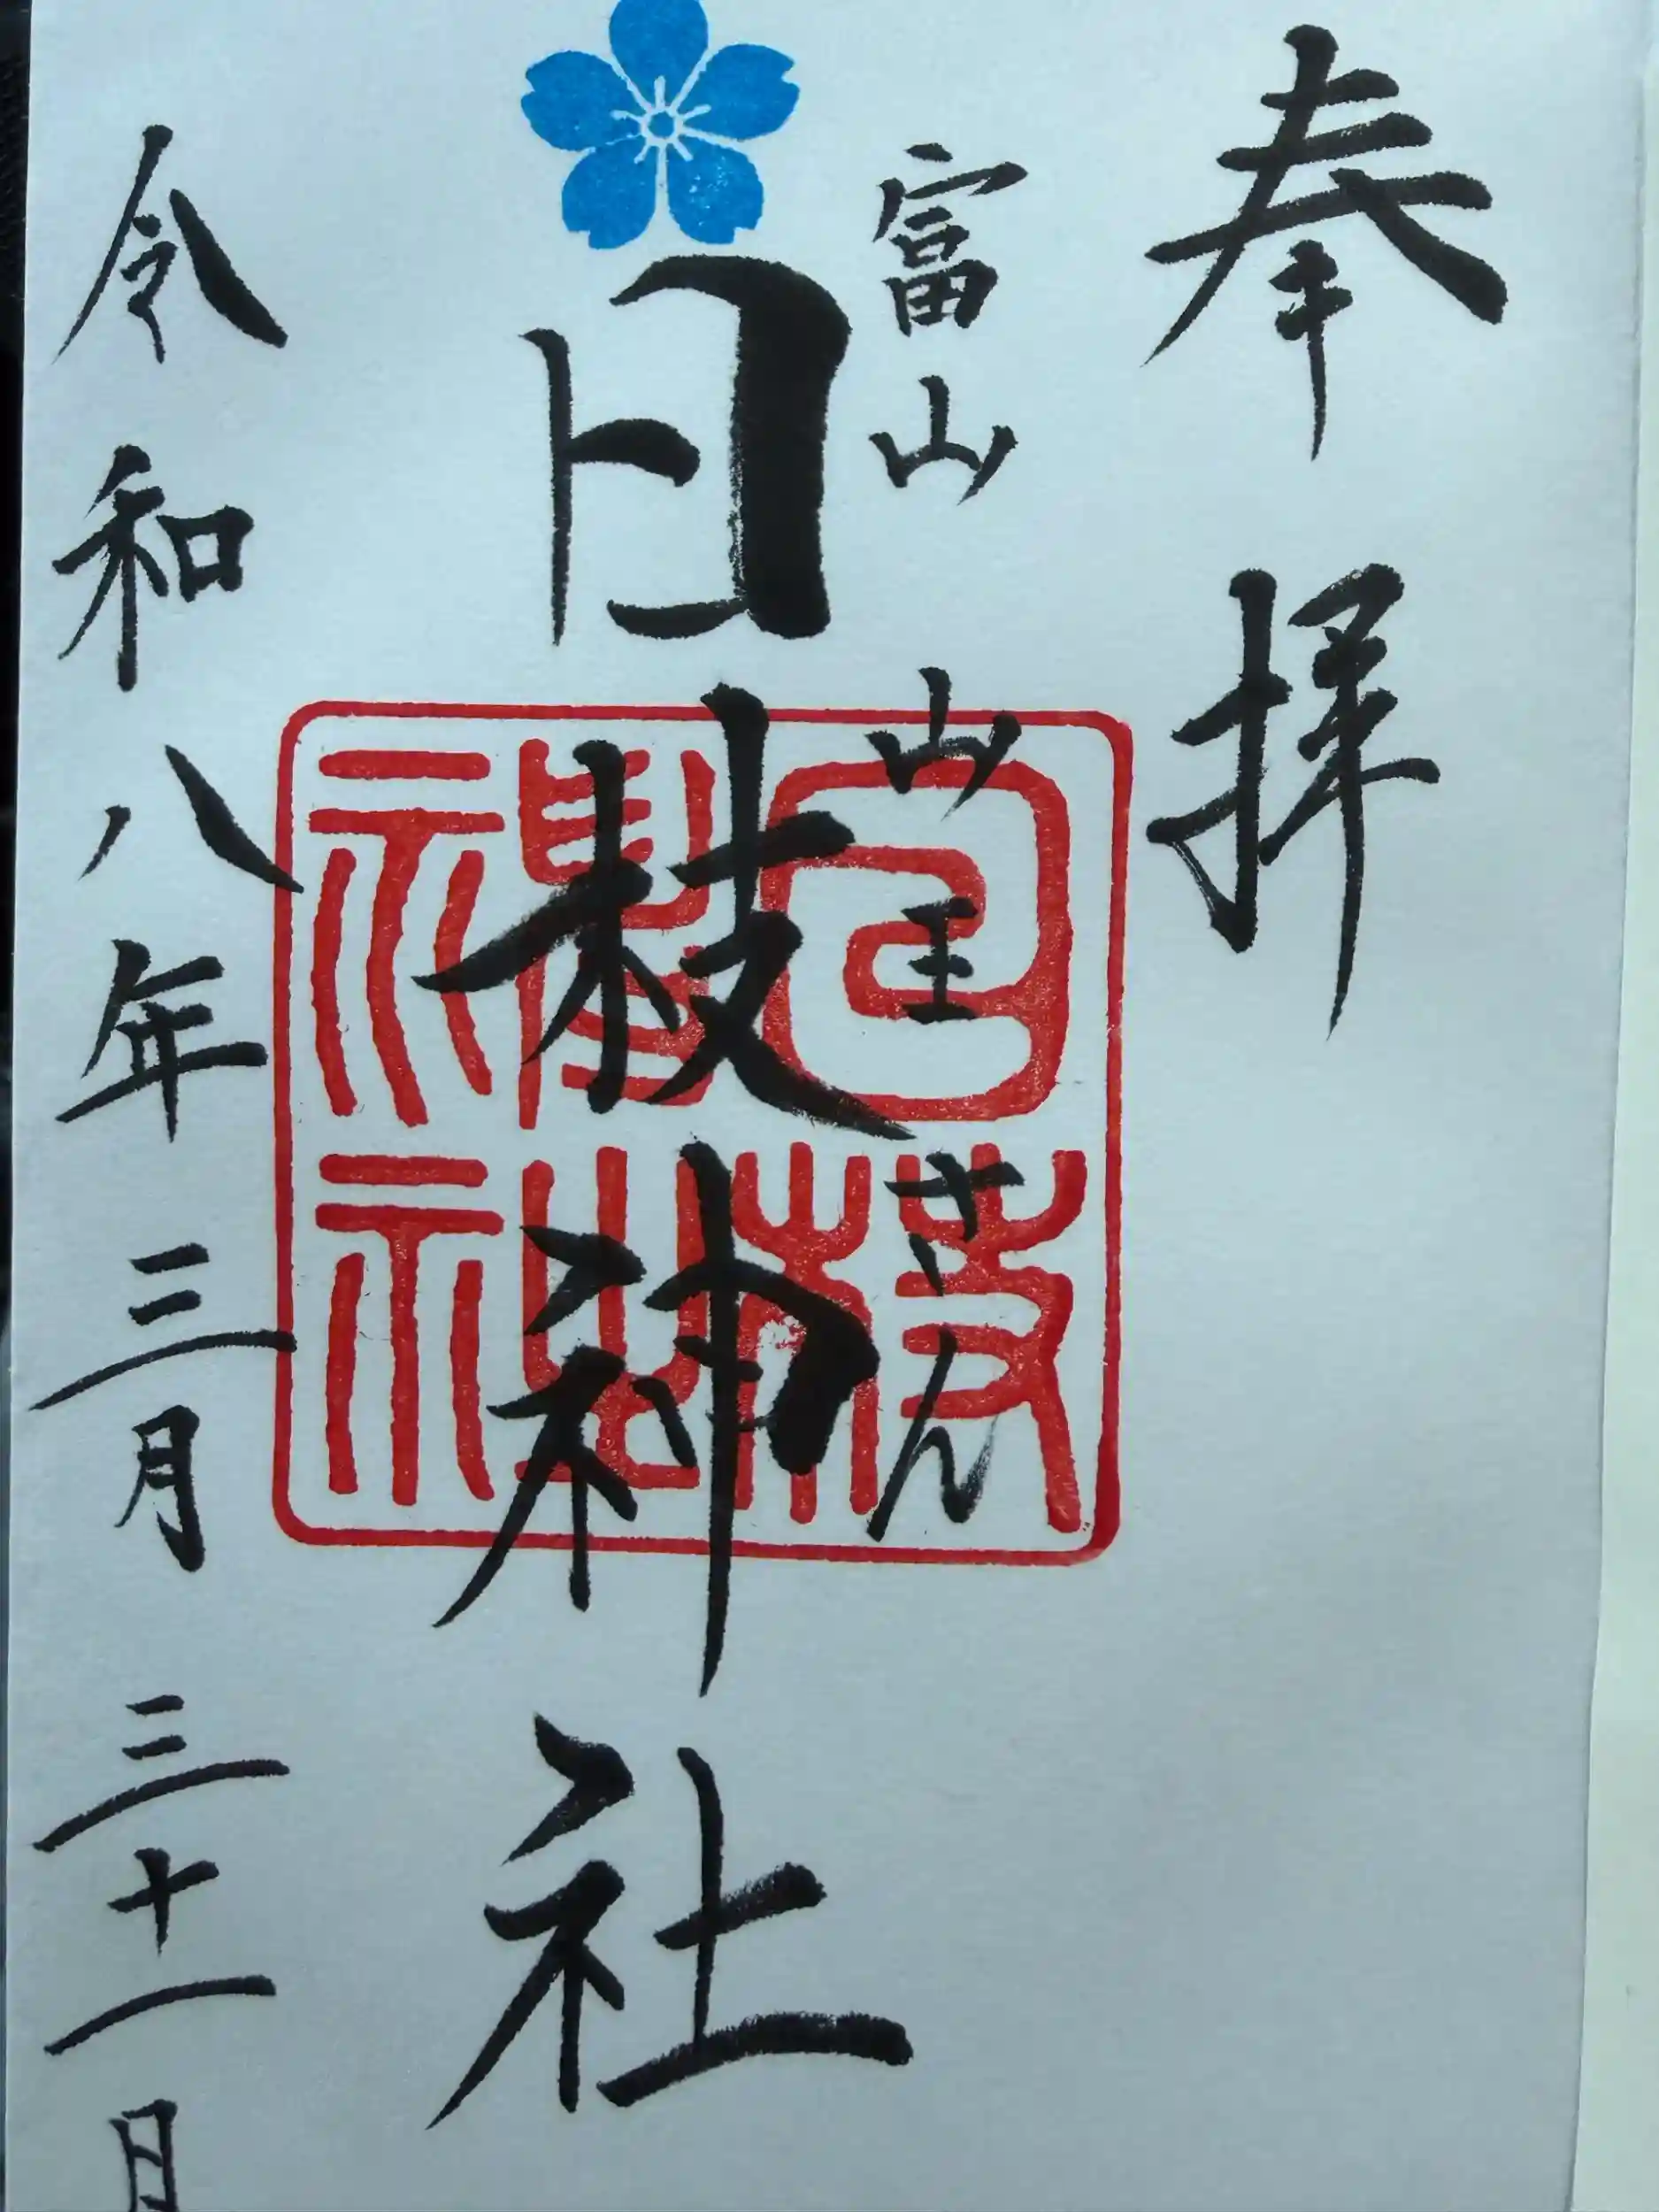 奉拝
富山山王さん
日枝神社
日枝神社
令和八年三月三十一日